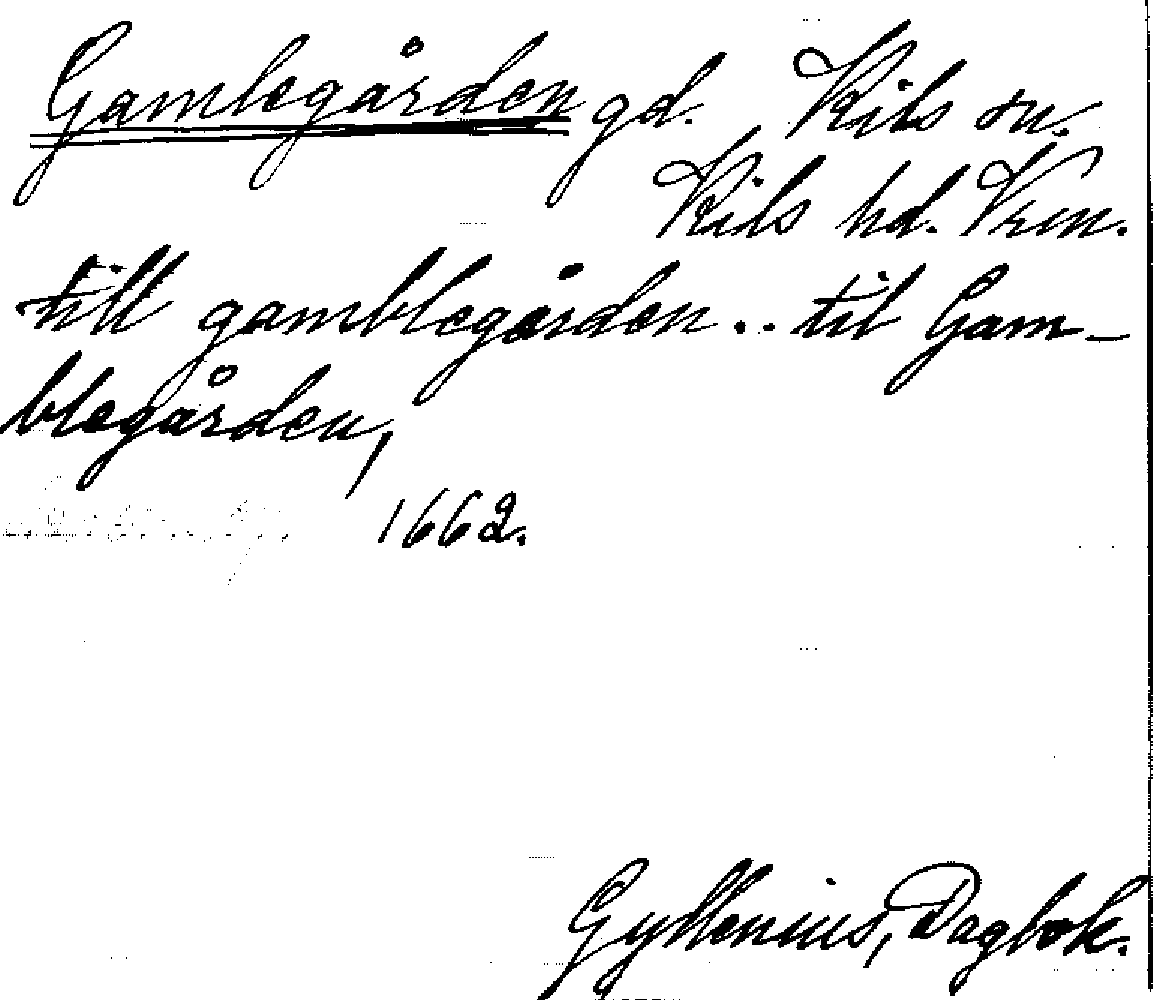 Gamlegården gd. Kils sn.
Kils hd. Vrm.
till gamblegården .. til Gam-
blegården,
1662.
Gyllenius, Dagbok.